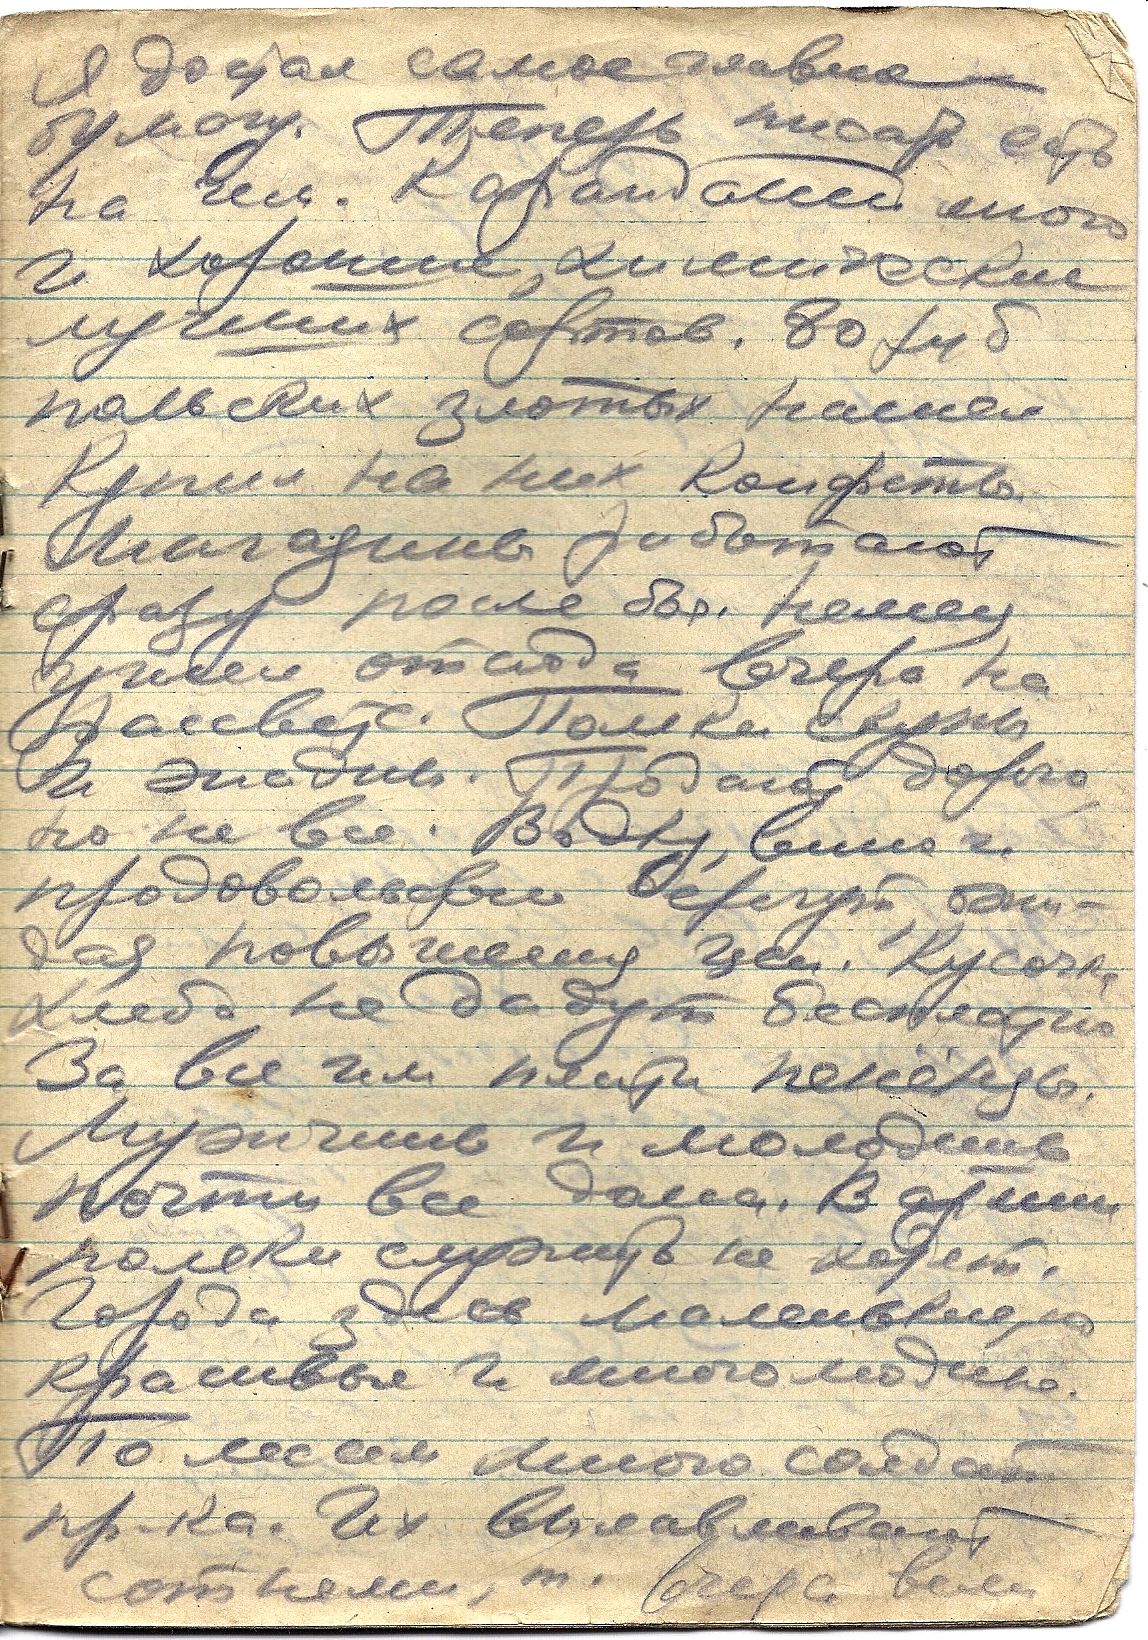 Я достал самое главное –
бумагу. Теперь писать есть
на чем. Карандашей много
и хороших, химических
лучших сортов. 80 руб
польских злотых нашел
Купил на них конфеты.
Магазины работают
сразу после боя. Немец
ушел отсюда вчера на
рассвете. Поляки скупы
и жадны. Продают дорого,
но не все. Водку, вино и
продовольствие берегут, ожи-
дая повышения цен. Кусочка
хлеба не дадут бесплатно
За все им плати пенёнзы.
Мужчины и молодые
почти все дома. В армии
поляки служить не хотят.
Города здесь маленькие, но
красивые и многолюдные.
По лесам много солдат
пр-ка. Их вылавливают
сотнями, т. Вчера вели